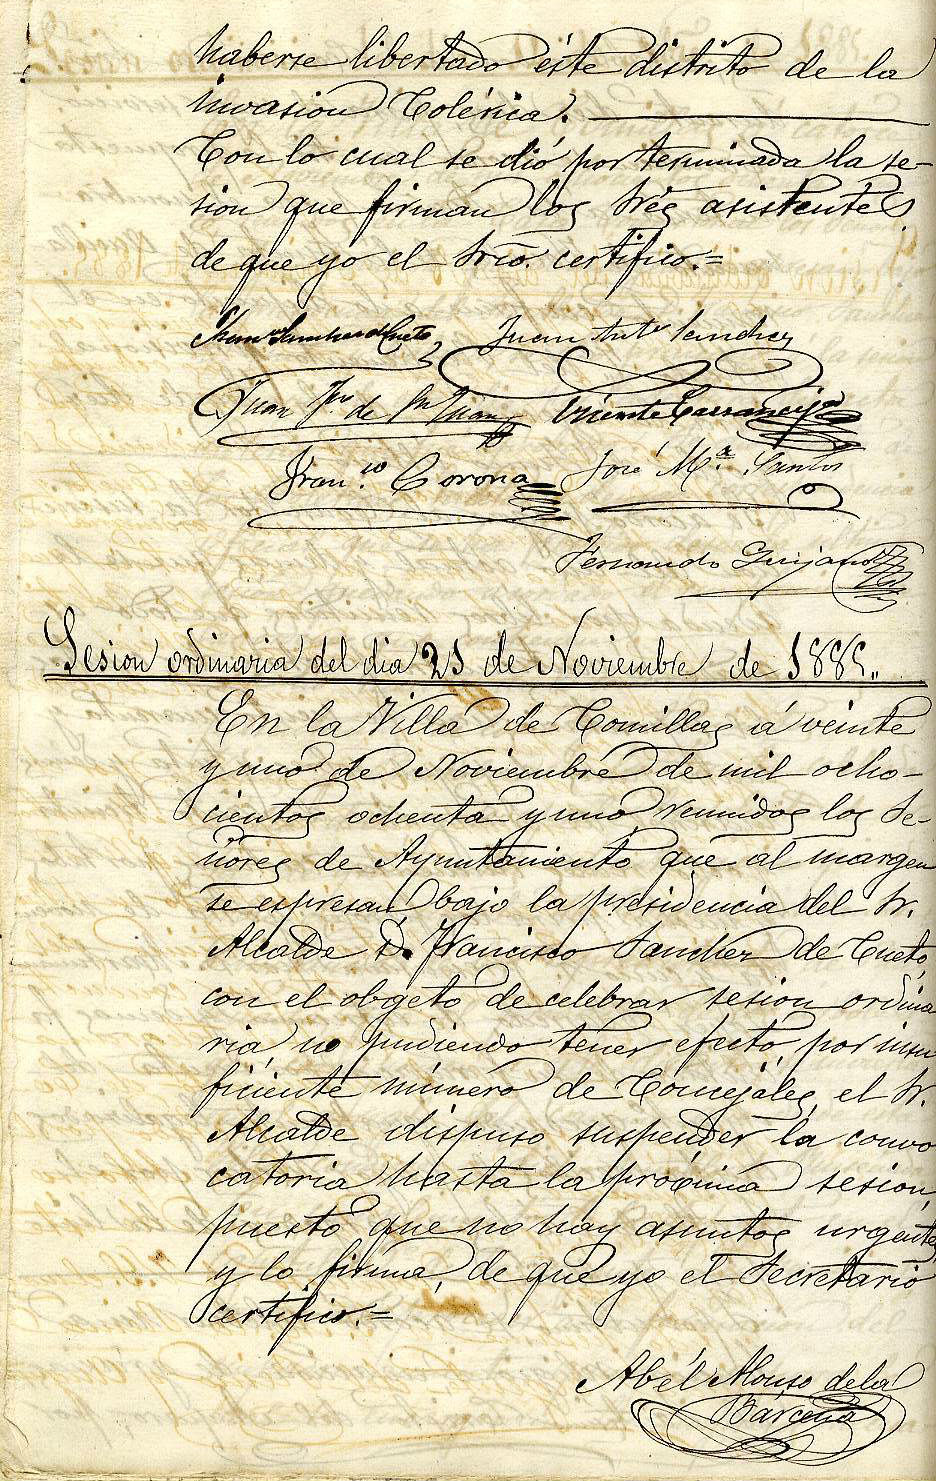 haberse libertado éste distrito de la
invasion Colérica.
Con lo cual se dió por terminada la se-
sion que firman los Sres asistentes
de que yo el Srio. certifico.=
Sanchez de Cueto Juan Antº Sanchez
Juan de Vicente Carranceja
Franco Corona José Mª Santos
Fernando Quijano
Sesion ordinaria del dia 21 de Noviembre de 1885.
En la Villa de Comillas á veinte
y uno de Noviembre de mil ocho-
cientos ochenta y uno reunidos los Se-
ñores de Ayuntamiento que al margen
se espresan, bajo la presidencia del Sr.
Alcalde D. Francisco Sanchez de Cueto,
con el obgeto de celebrar sesion ordina
ria, no pudiendo tener efecto, por insu
ficiente número de Concejales, el Sr.
Alcalde dispuso suspender la convo
catoria hasta la proxima sesion,
puesto que no hay asuntos urgentes,
y lo firma, de que yo el Secretario
certifico.=
Abél Alonso de la
Bárcena